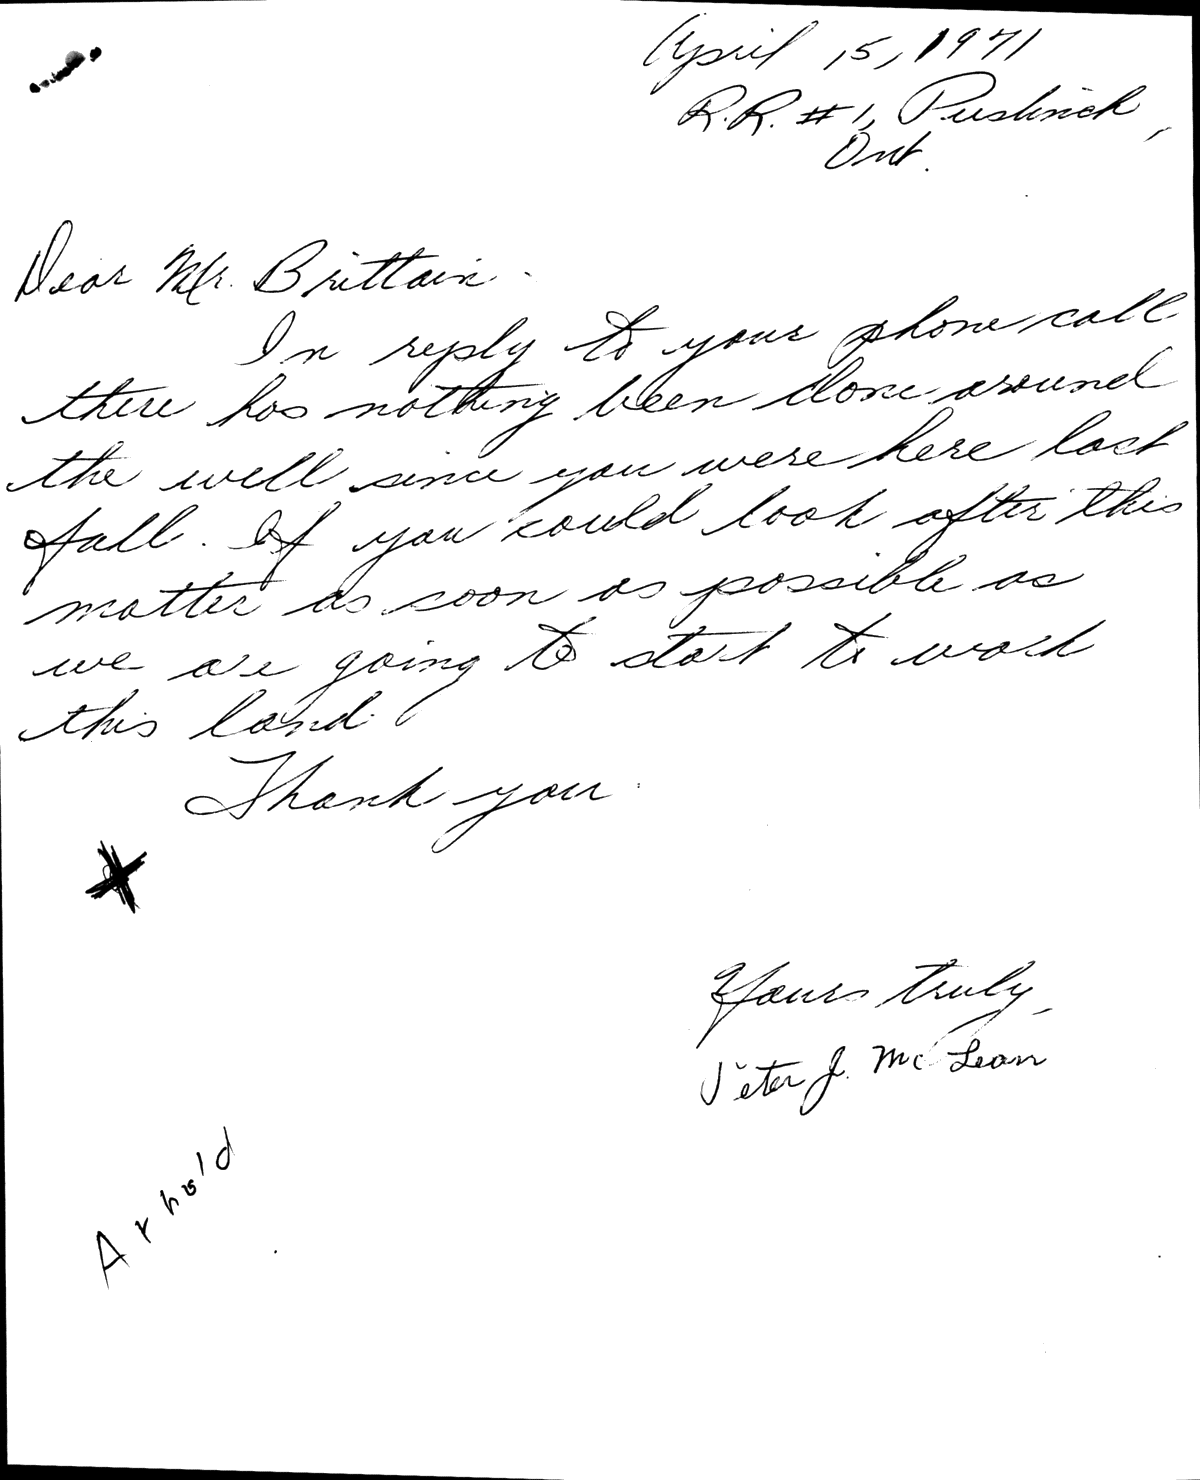 April 15, 1971
R.R. #1, Puslinch,
Ont.
Dear Mr. Brittain.
In reply to your phone call
there has nothing been done around
the well since you were here last
fall. If you could look after this
matter as soon as possible as
we are going to start to work
this land.
Thank you.
Yours truly,
Peter J. McLean
Arnold